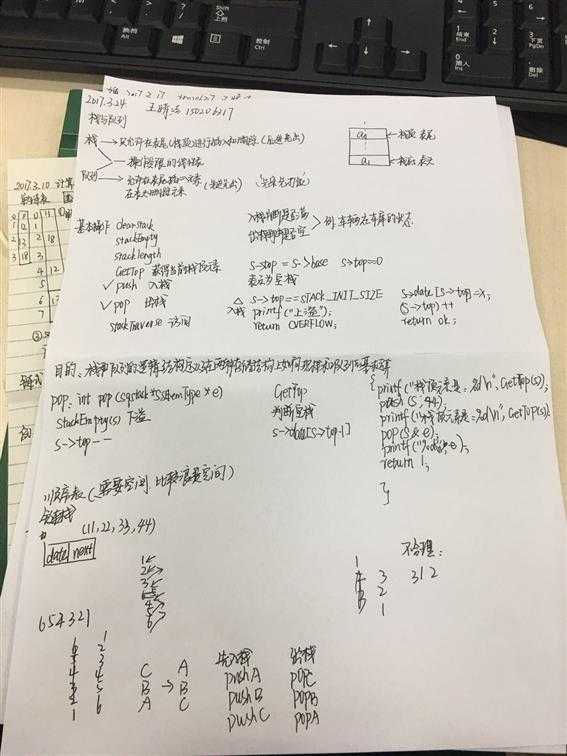 2017.3.24 150206217
栈与队列
栈 → 只允许在表尾(栈顶)进行插入和删除 (后进先出)
操作受限的线性表
队列 → 允许在表尾插入元素 (先进先出)
在表头删除元素
an ← 栈顶 表尾
a1 ← 栈底 表头
基本操作 clearstack
stackEmpty
stacklength
GetTop 获得当前栈顶元素
✓ push 入栈
✓ pop 出栈
stackTraverse 访问
入栈判断是否满
出栈判断是否空
例.车辆在车库的状态
s->top = s->base s->top==0
表示为空栈
△ s->top==STACK_INIT_SIZE
printf("上溢");
return OVERFLOW;
s->data[s->top]=x;
(s->top)++
return ok;
目的、栈和队列的逻辑结构定义以及在两种存储结构上如何
pop. int pop (sqstack *s, elemType *e)
stackEmpty(s) 下溢
s->top--
GetTop
判断空栈
s->data[s->top-1]
{printf("栈顶元素是:%d\n", GetTop(s));
push(s, 44);
printf("栈顶元素是:%d\n", GetTop(s));
pop(s, &e);
printf("%d\n", e);
return 1;
}
顺序表 (需要空间 比较 空间)
链栈
(11,22,33,44)
data next
1
2
3
4
5
6
654321
6 1
5 3
4 4
3 5
2 6
1
C A
B → B
A C
先入栈 出栈
push A pop C
push B pop B
push C pop A
不合理:
3 312
2
1
2017.3.10 计算